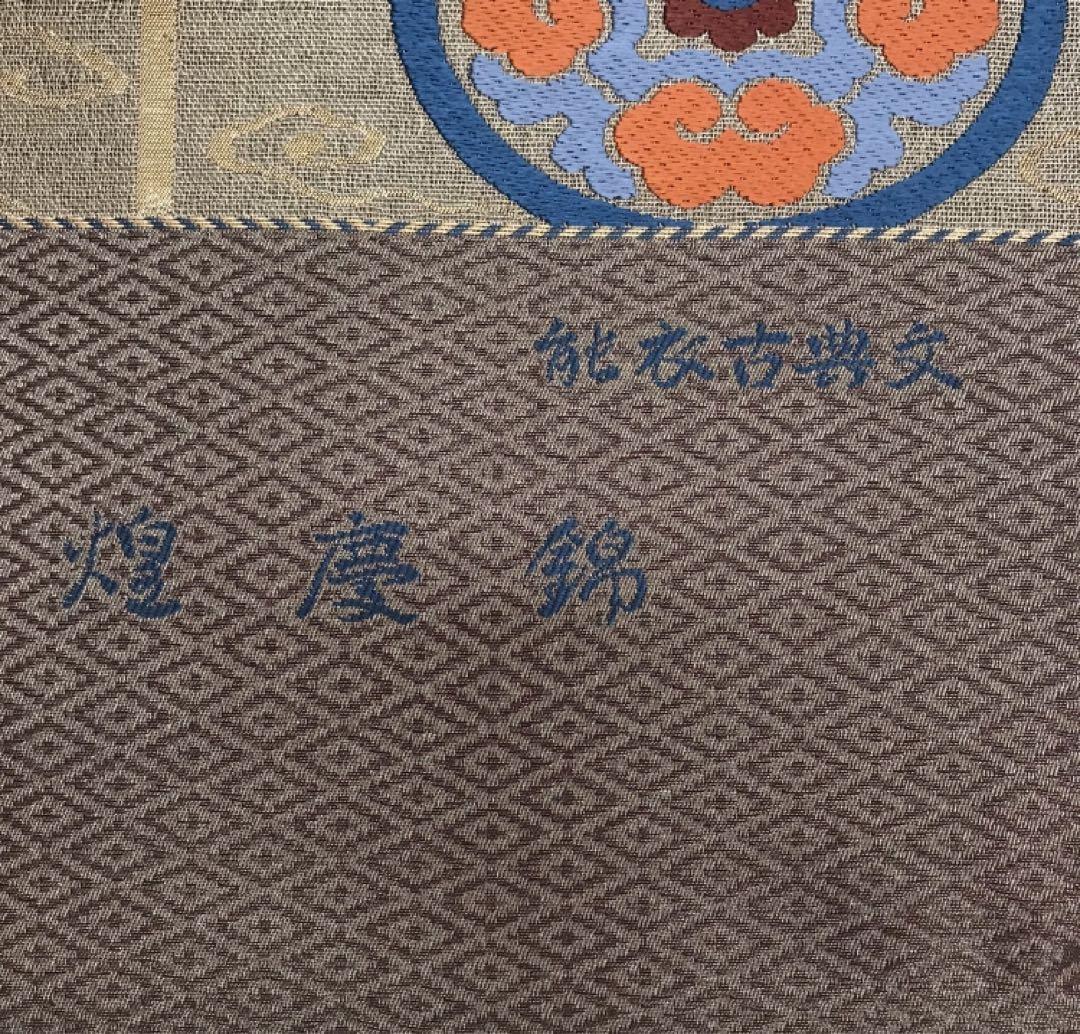 能衣古典文
煌慶錦